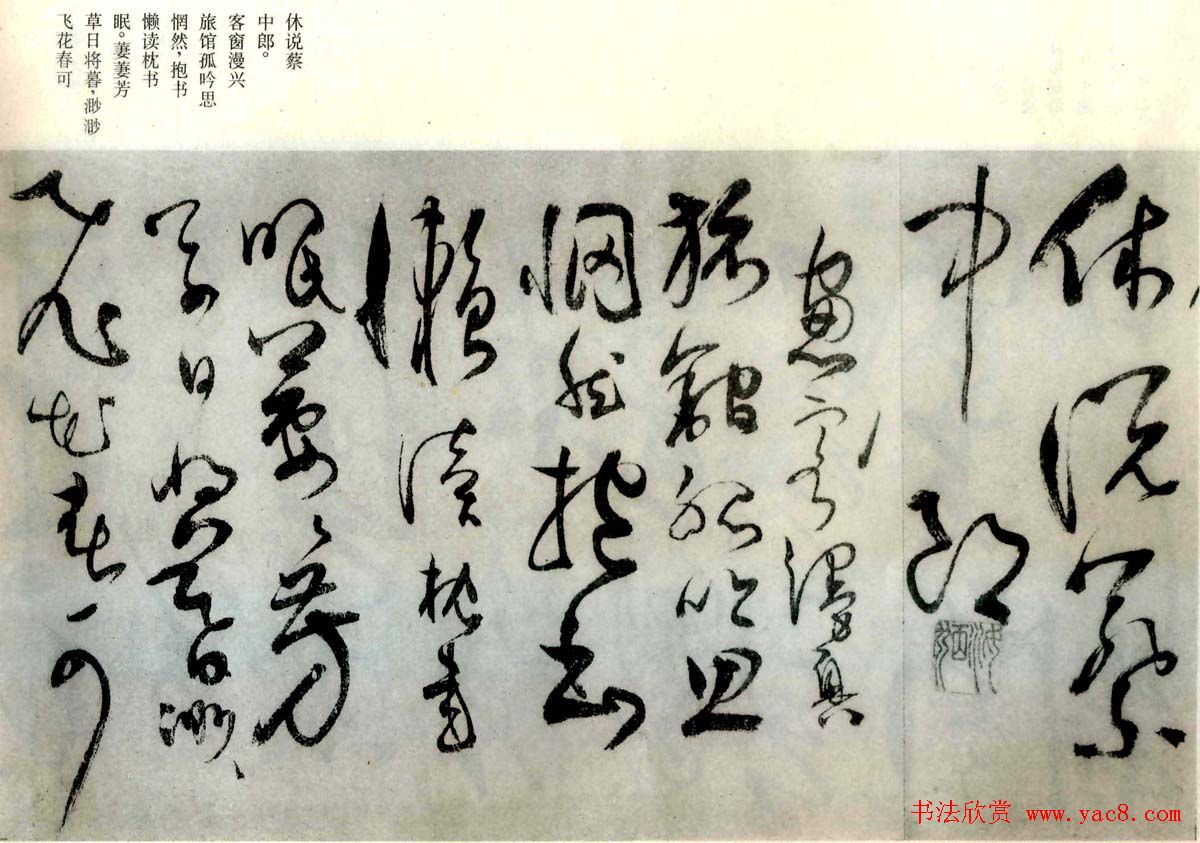 休说蔡
中郎。
客窗漫兴
旅馆孤吟思
惘然，抱书
懒读枕书
眠。萋萋芳
草日将暮，渺渺
飞花春可
休說蔡
中郎
窻客漫興
旅館孤吟思
惘然抱書
懶讀枕書
眠萋〻芳
草日將暮渺〻
飛花春可
书法欣赏 www.yac8.com